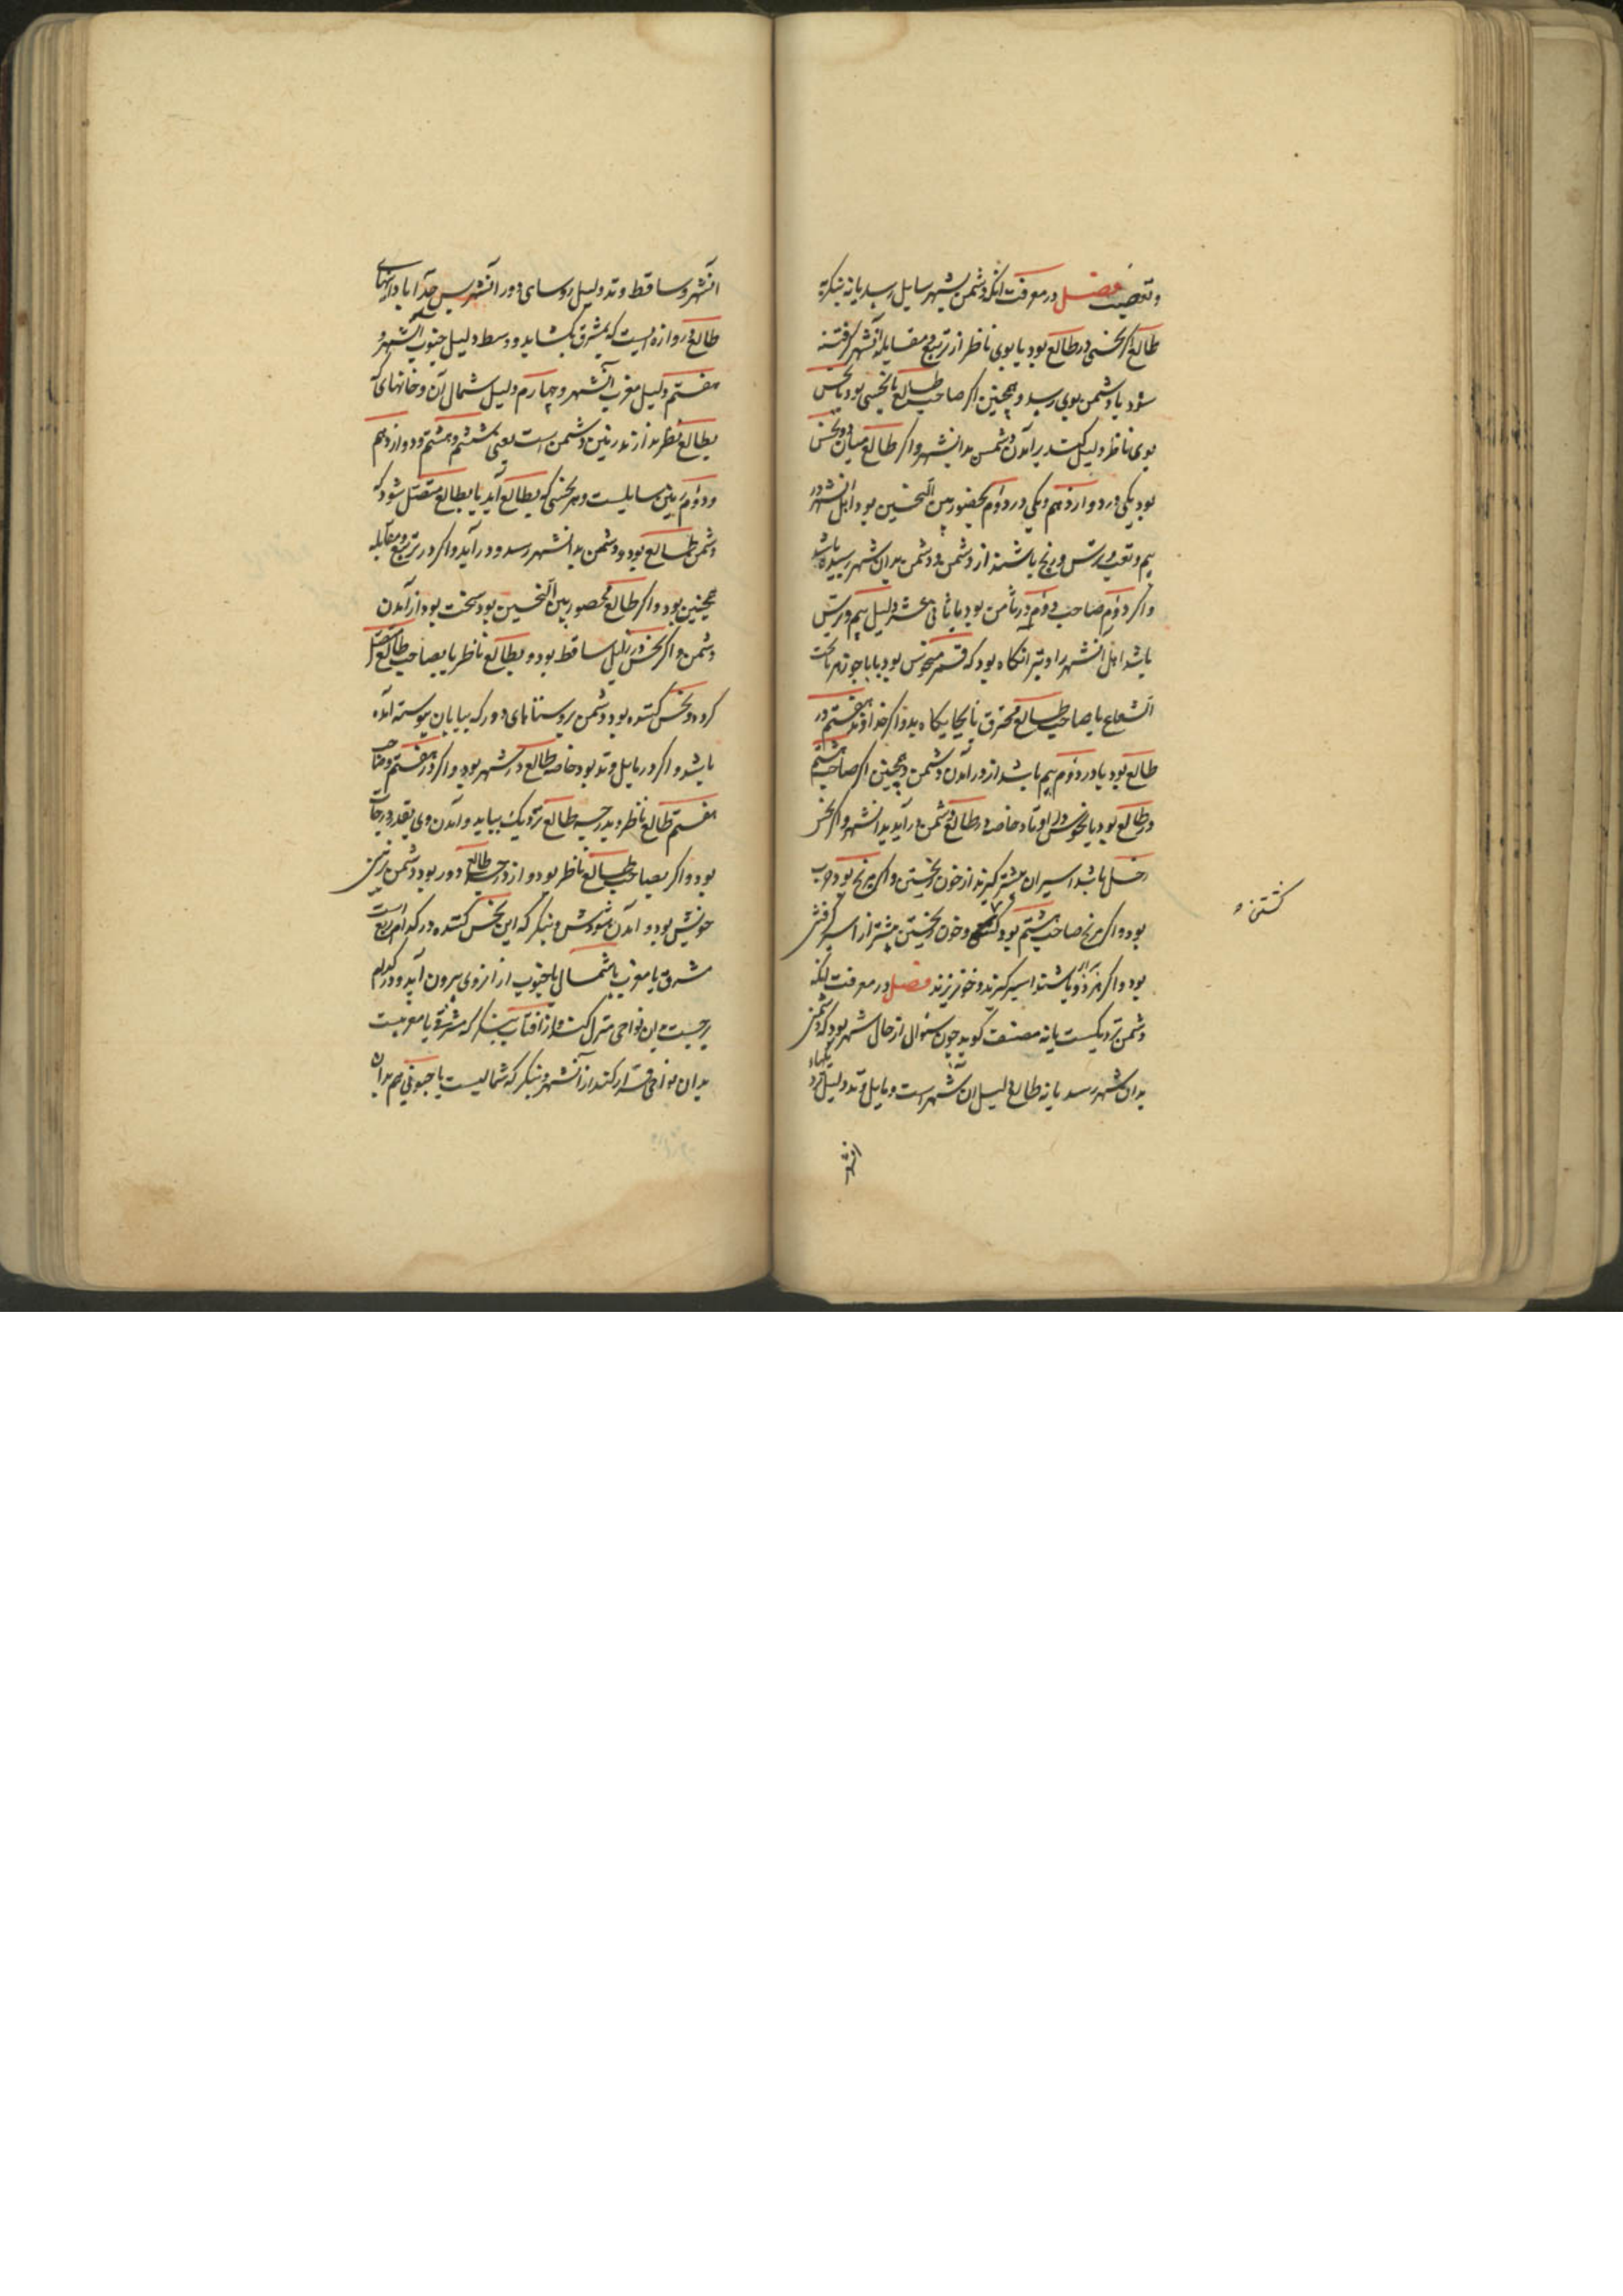 وتعصیت فصل در معرفت انکه دشمن بشهر سایل رسد یا نه بنکرکه
طالع اکر نحسی در طالع بود یا بوی ناظر از تربیع و مقابله آنشهر کرفته
شود یا دشمن بوی رسد و همچنین اکر صاحب طالع با نحسی بود یا نحس
بوی ناظر دلیل کند بر آمدن دشمن بدانشهر و اکر طالع میان دو نحس
بود یکی در دوازدهم و یکی در دوم محصور بین النحسین بود اهل انشهر در
بیم و تعب و ترس و رنج باشند از دشمن و دشمن بدان شهر رسیده باشد
و اکر دوم صاحب دوم در ثامن بود یا ثانی عشر دلیل بیم و ترس
باشد اهل انشهر را و بتر انکاه بود که قمر منحوس بود یا با جوزهر یا تحت
الشعاع یا صاحب طالع محترق یا بجایکاه بد و اکر خداوند هفتم در
طالع بود یا در دوم بیم باشد از در آمدن دشمن و همچنین اکر صاحب هشتم
در طالع بود یا نحوس در اوتاد خاصه در طالع دشمن در آید بدانشهر و اکر نحس
زحل باشد اسیران بیشتر کیرند از خون ریختن و اکر مریخ بود حرب
بود و اکر مریخ صاحب هشتم بود و خون ریختن بیشتر از اسیر کرفتن
کشتن و
بود و اکر هر دو باشند اسیر کیرند و خونریزند فصل در معرفت انکه
دشمن نزدیکست یا نه مصنف کوید چون سئوال از حال شهر بود که دشمن
بدان شهر رسد یا نه طالع دلیل ان شهر است و مایل وتد دلیل نزدیکهاء
انشهر
انشهر و ساقط وتد دلیل روسای دور آنشهر پس حد آبادانیهای
طالع دروازه ایست که بمشرق بکشاید و وسط دلیل جنوب آنشهر و
هفتم دلیل مغرب آنشهر و چهارم دلیل شمال آن و خانهای که
بطالع نظر ندارند زینن دشمن است یعنی ششم و هشتم و دوازدهم
و دوم سایلست و هر نحسی که بطالع آید یا بطالع متصل شود که
دشمن طالع بود و دشمن بدانشهر رسد و در آید و اکر در تربیع و مقابله
همچنین بود و اکر طالع محصور بین النحسین بود سخت بود از آمدن
دشمن و اکر نحس در زایل ساقط بود و بطالع ناظر یا بصاحب طالع متصل
کرده و نحس کننده بود دشمن بروستاهای دور که ببیابان پیوسته آمده
باشد و اکر در مایل وتد بود خاصه طالع در شهر بود و اکر در هفتم و صاحب
هفتم طالع ناظر و بدرجه طالع نزدیک بیاید و آمدن وی بقدر درجات
بود و اکر بصاحب طالع ناظر بود و از درجه طالع دور بود دشمن در زمین
خویش بود و آمدن مشوش و بنکر که این نحس کننده در کدام ربع است
مشرق یا مغرب یا شمال یا جنوب از انروی بیرون آید و در کدام
برجست بدان نواحی منزل کند و از آفتاب بنکر که مشرقی یا مغربیست
بدان نواحی قرار کند از آنشهر و بنکر که شمالیست یا جنوبی هم بدان